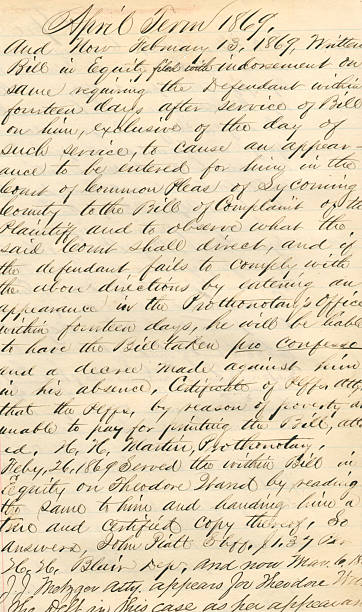 April Term 1869.
And Now February 13, 1869, Written
Bill in Equity filed with indorsement on
same requiring the Defendant within
fourteen days after service of Bill
on him, exclusive of the day of
such service, to cause an appear-
ance to be entered for him in the
Court of Common Pleas of Lycoming
County to the Bill of Complaint of the
Plaintiff and to observe what the
said Court shall direct, and if
the defendant fails to comply with
the above directions by entering an
appearance in the Prothonotary's Office
within fourteen days, he will be liable
to have the Bill taken pro confesso
and a decree made against him
in his absence. Certificate of
that the Plffs, by reason of poverty
unable to pay for printing the Bill,
ed. H. H. Martin, Prothonotary.
Feby. 26, 1869 Served the within Bill in
Equity on Theodore Wand by reading
the same to him and handing him a
true and certified Copy thereof. So
answers, John Piatt Shff.
H. H. Blair Dep. And now Mar. 6, 18
J. J. Metzger Atty. appears for Theodore
the Deft in this case as per appear